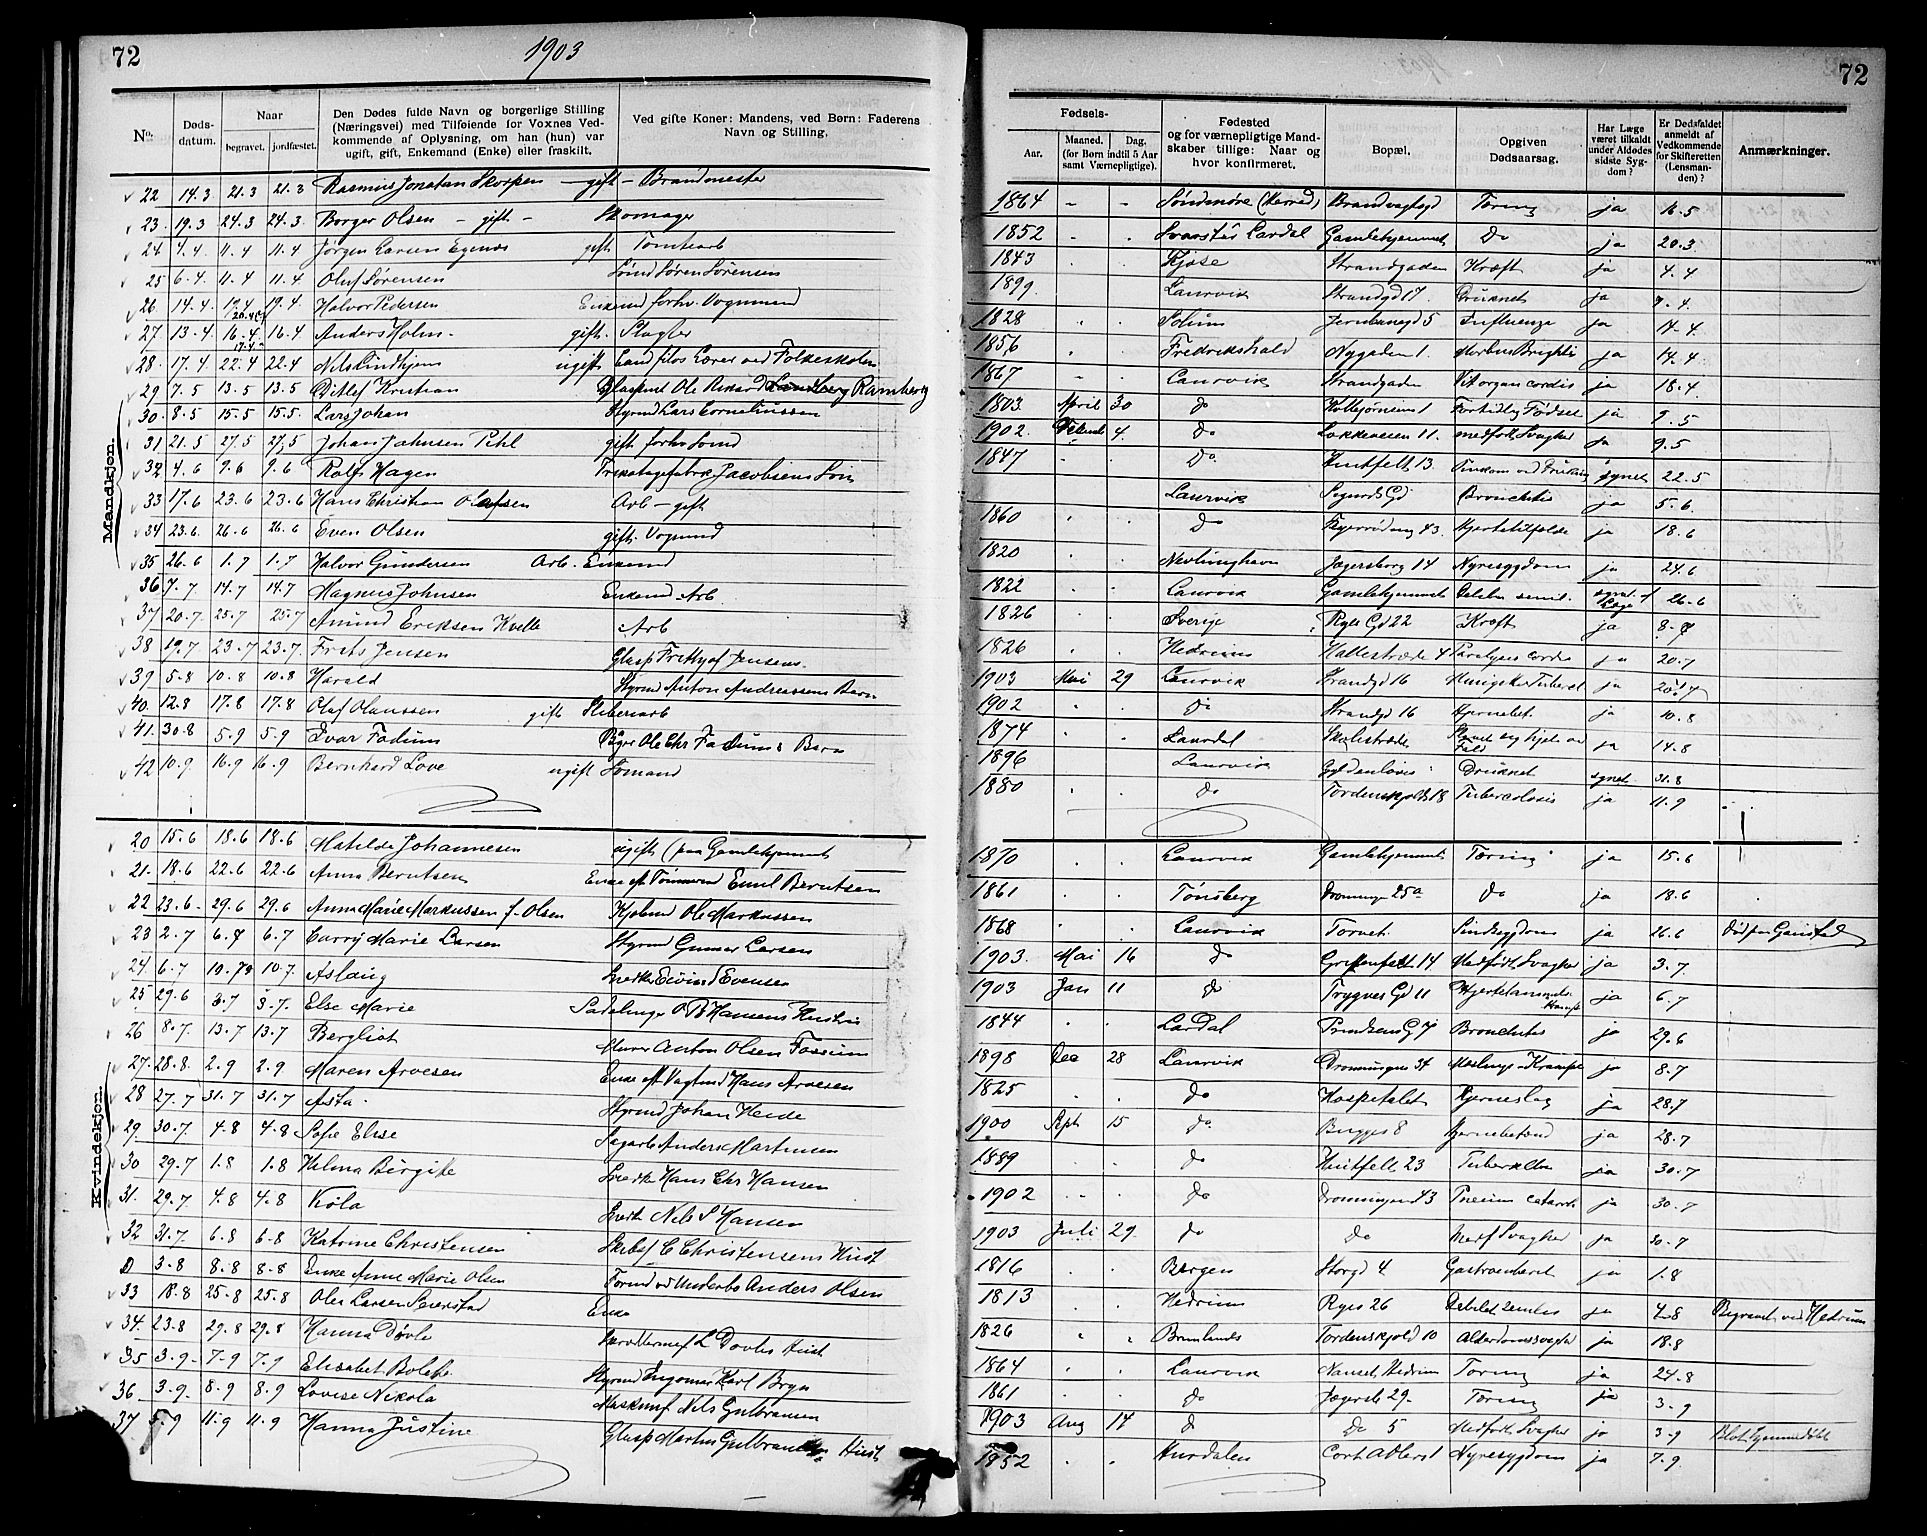 72
1903
72
No. Døds-datum. Naar begravet. jordfæstet. Den Dødes fulde Navn og borgerlige Stilling (Næringsvei) med Tilføiende for Voxnes Vedkommende af Oplysning, om han (hun) var ugift, gift, Enkemand (Enke) eller fraskilt. Ved gifte Koner: Mandens, ved Børn: Faderens Navn og Stilling. Fødsels- Aar. Maaned. Dag. (for Børn indtil 5 Aar samt Værnepligtige). Fødested og for værnepligtige Mandskaber tillige: Naar og hvor konfirmeret. Bopæl. Opgiven Dødsaarsag. Har Læge været tilkaldt under Afdødes sidste Sygdom? Er Dødsfaldet anmeldt af Vedkommende for Skifteretten (Lensmanden)? Anmærkninger.
Mandkjøn.
22 14.3 21.3 21.3 Rasmus Jonatan Skorpen - gift - Brandmester 1864 - - Søndmøre (Herred) Brandvagtsgd Tæring ja 16.5
23 19.3 24.3 24.3 Borger Olsen - gift - Skomager 1852 Svarstad Lardal Gamlehjemmet Do ja 20.3
24 1.4 11.4 11.4 Jørgen Larsen Egenæs gift. Tomtearb 1843 Kjose Strandgaden Kræft ja 4.4
25 6.4 11.4 11.4 Oluf Sørensen Sømd Søren Sørensen 1899 Laurvik Strandgd 17. Druknet ja 7.4
26 14.4 19.4 19.4 Halvor Pedersen Enkemd forhv. Vognmand 1828 Solum Jernbanegd 5 Influenza ja 14.4
27 13.4 16.4 16.4 Anders Holm - gift. Slagter 1856 Fredrikshald Nygaden 1. Morbus Brightii ja 14.4
28. 17.4 22.4 22.4 Nils Lindhjem ugift Cand filos Lærer ved Folkeskolen 1867 Laurvik Strandgaden Vit organ cordis ja 18.4
29 7.5 13.5 13.5 Ditlef Kristian Glaspust Ole Rikard Ramberg 1803 April 30 do Kolbjørnsens 1 Fortidlig Fødsel ja 9.5
30. 8.5 15.5 15.5. Lars Johan Styrmd Lars Corneliussen 1902. 4. Do Løkkeveien 11. medfødt Svaghed ja 9.5
31 21.5 27.5 27.5 Johan Johnsen Pihl gift forhv Sømd 1847 Do Huitfeldt 13. synet 22.5
32 4.6 9.6 9.6 Rolf Hagen Trikotagefabrik Jacobsens Søn Laurvik Sigurds Gd Bronchitis ja 5.6
33 17.6 23.6 23.6 Hans Christian Olafsen Arb - gift 1860 Do 43. Hjertetilfælde ja 18.6
34 23.6. 26.6 26.6 Even Olsen gift. Vognmd 1820 Nevlunghavn Jegersborg 14 Nyresygdom ja 24.6
35 26.6 1.7 1.7 Halvor Gundersen Arb. Enkemd 1822 Laurvik Gamlehjemmet Debilitas senil. synet af Læge 26.6
36 7.7 14.7 14.7 Magnus Johnsen Enkemd Arb 1826 Sverige Ryes Gd 22 Kræft ja 8.7
37 20.7 25.7 25.7 Amund Eriksen Kvelle Arb 1826 Hedrum Hallestræde 4 Paralysis cordis ja 20.7
38 19.7 23.7 23.7 Frits Jensen Glasp Fretthjof Jensens. 1903 Mai 29 Laurvik Strandgd 16 ja 20.7
39 5.8 10.8 10.8 Harald Styrmd Anton Andreassens Barn 1902 do Strandgd 16 Hjernebet. ja 10.8
40. 12.8 17.8 17.8 Olaf Olaussen gift Sliberiarb 1874 Laurdal Skolestræde ja 14.8
41. 30.8 5.9 5.9 Ivar Fadum Bager Ole Chr Fadums Barn 1896 Laurvik Gyldenløves Druknet synet. 31.8
42 10.9. 16.9 16.9 Bernhard Love ugift Sømand 1880 do Tordenskjolds 18 Tuberculosis ja 11.9
Kvindekjøn.
20 15.6 18.6 18.6 Matilde Johannesen ugift (paa Gamlehjemmet 1870 Laurvik Gamlehjemmet Tæring ja 15.6
21. 18.6 22.6 22.6 Anna Berntsen Enke af Tømmermd Emil Berntsen 1861 Tønsberg Dronningn 25a do ja 18.6
22 23.6 29.6 29.6 Anna Marie Markussen f. Olsen Kjøbmd Ole Markussen 1868 Laurvik Torvet. Sindssygdom ja 26.6 død paa Gaustad
23 2.7 6.7 6.7 Carry Marie Larsen Styrmd Gunnar Larsen 1903. Mai 16 do Griffenfeldt 14 Medfødt Svaghed ja 3.7
24. 6.7 10.7 10.7. Aslaug Snedker Eivind Evensen 1903 Jan 11 do Trygves Gd 11 ja 6.7
25 29.6 3.7 3.7. Else Marie Sadelmager O B Hansens Hustru 1844 Lardal Prindsens G 7 Bronchitis ja 29.6
26 8.7. 13.7 13.7 Bergliot Murer Anton Olsen Fossum 1898 Dec 28 Laurvik Dronningns 34 Krampe ja 8.7
27. 28.8. 2.9 2.9 Maren Arvesen Enke af Vagtmd Hans Arvesen 1825 do Hospitalet Hjerneslag ja 28.7
28 27.7 31.7 31.7 Asta. Styrmd Johan Heide 1900 Apt 15 do Bugges 8 Hjernebetænd ja 28.7
29. 30.7. 4.8 4.8 Sofie Elise Sagarb Anders Martinsen 1889 do Huitfelt 23 ja 30.7
30 29.7 1.8 1.8 Helma Birgitte Snedk Hans Chr Hansen 1902 do Dronningen 43 ja 30.7
31. 29.7 4.8 4.8 Viola Snedk Nils S Hansen 1903 Juli 29. do do Medf Svaghed ja 30.7
32 31.7 6.8 6.8 Katrine Christensen Skibsf C Christensens Hust 1816 Bergen Storgd 4 ja 1.8
D 3.8 8.8 8.8 Enke Anne Marie Olsen Anders Olsen 1813 Hedrum Ryes 26 ja 4.8 Begravet ved Hedrum
33 18.8 25.8 25.8 Enke 1826 Brunlanes Tordenskjold 10 Alderdomssvaghed ja 18.8
34. 23.8 29.8 29.8 Hanna Døvle L Dovles Hust 1864 Laurvik Nanset, Hedrum Tæring ja 24.8
35 3.9 7.9 7.9 Elisabet Bolette Styrmd Ingomar Karl Bryn 1861 do Jægersb 29. Tæring ja 3.9
36 3.9. 8.9 8.9 Lovise Nikola Maskinmf Nils Gulbransen 1903 Aug 14 d Do 5 Medfødt Svaghed ja 3.9
37. 5.9 11.9 11.9 Hanna Justine Glasp Martin Gulbrandsen Hust 1852 Hurdalen Cort Adlers 1 Nyresygdom ja 7.9